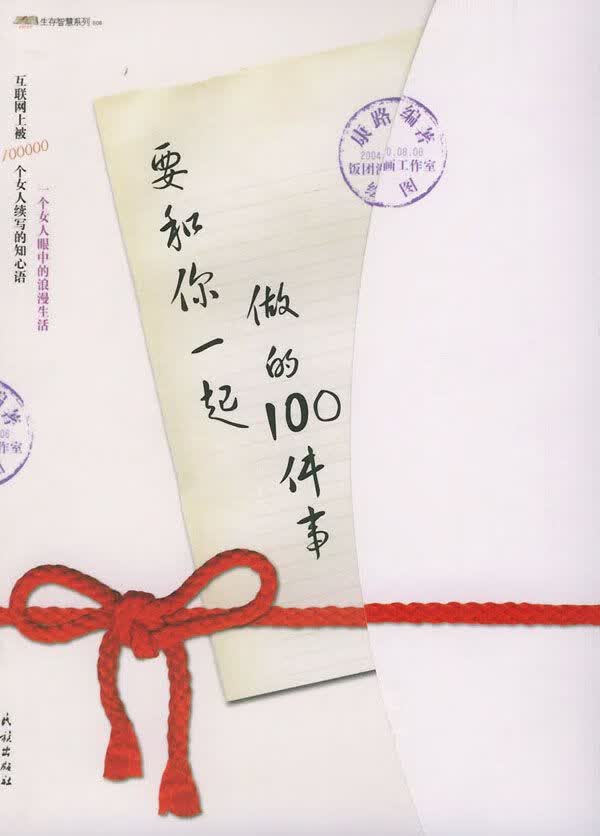 生存智慧系列 008
互联网上被
100000
个女人续写的知心语
一个女人眼中的浪漫生活
要和你一起
做的100件事
康路 编著
2004 0.08.08
饭团漫画工作室
绘图
编著
08
作室
民族出版社